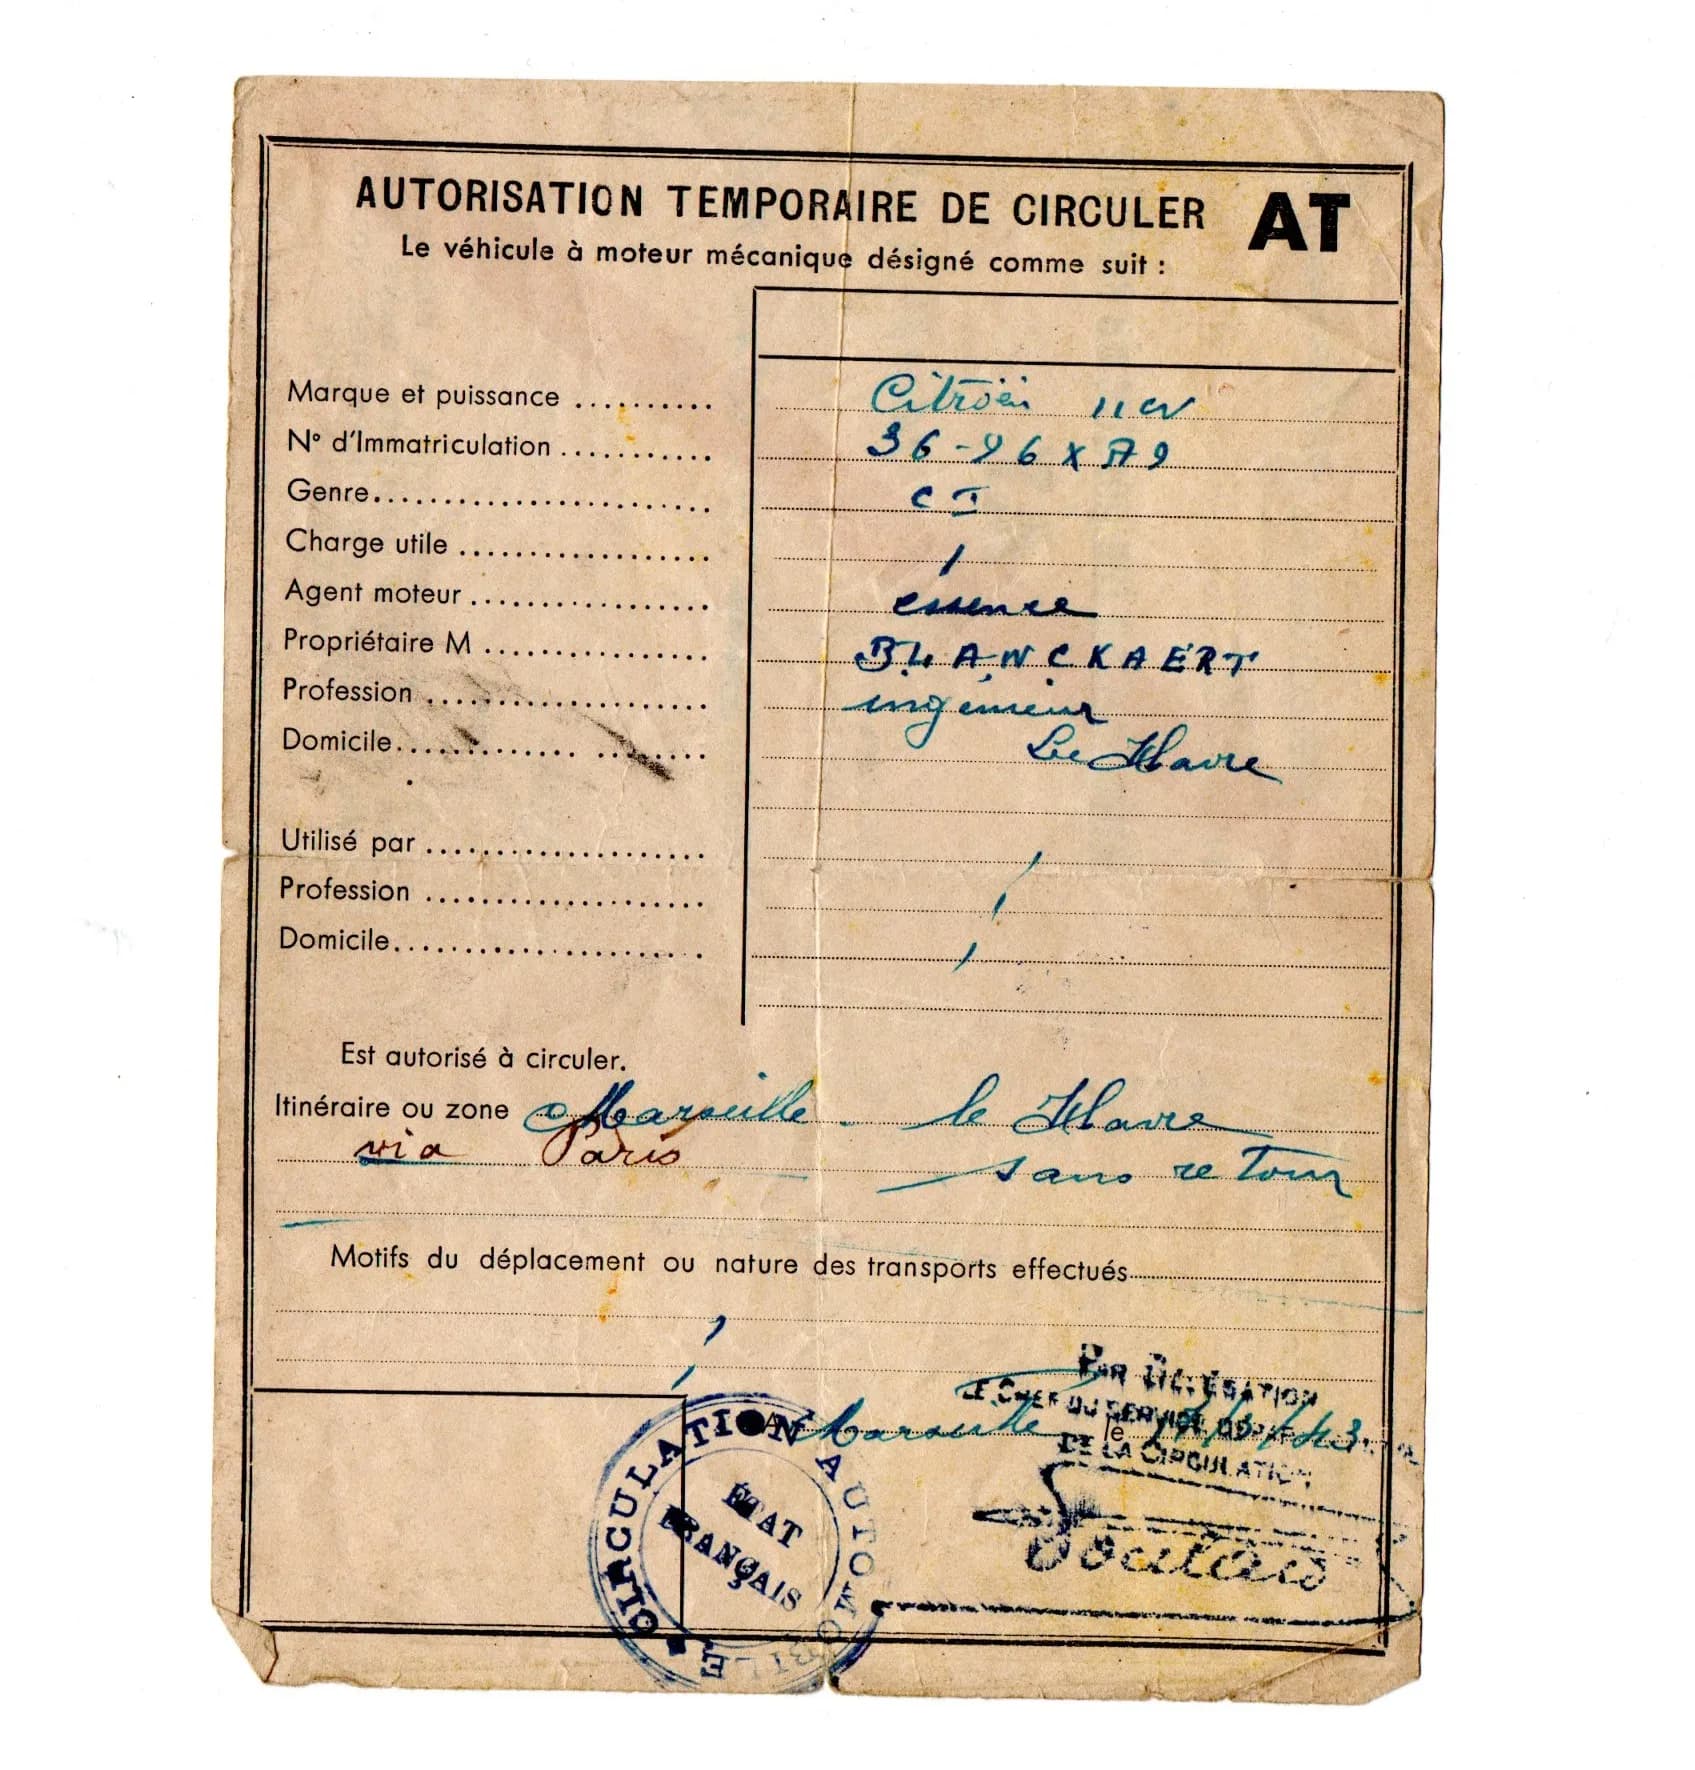 AUTORISATION TEMPORAIRE DE CIRCULER AT
Le véhicule à moteur mécanique désigné comme suit :
Marque et puissance .......... Citroën 11 cv
N° d'Immatriculation ........... 36-96 X A9
Genre....................... C I
Charge utile .................. /
Agent moteur ................. essence
Propriétaire M ................ BLANCKAERT
Profession .................... ingénieur
Domicile..................... Le Havre
Utilisé par .................... /
Profession .................... /
Domicile...................... /
Est autorisé à circuler.
Itinéraire ou zone Marseille - le Havre
via Paris sans retour
Motifs du déplacement ou nature des transports effectués
PAR DÉLÉGATION
LE CHEF DU SERVICE
A Marseille le
DE LA CIRCULATION
CIRCULATION AUTOMOBILE
ÉTAT
FRANÇAIS